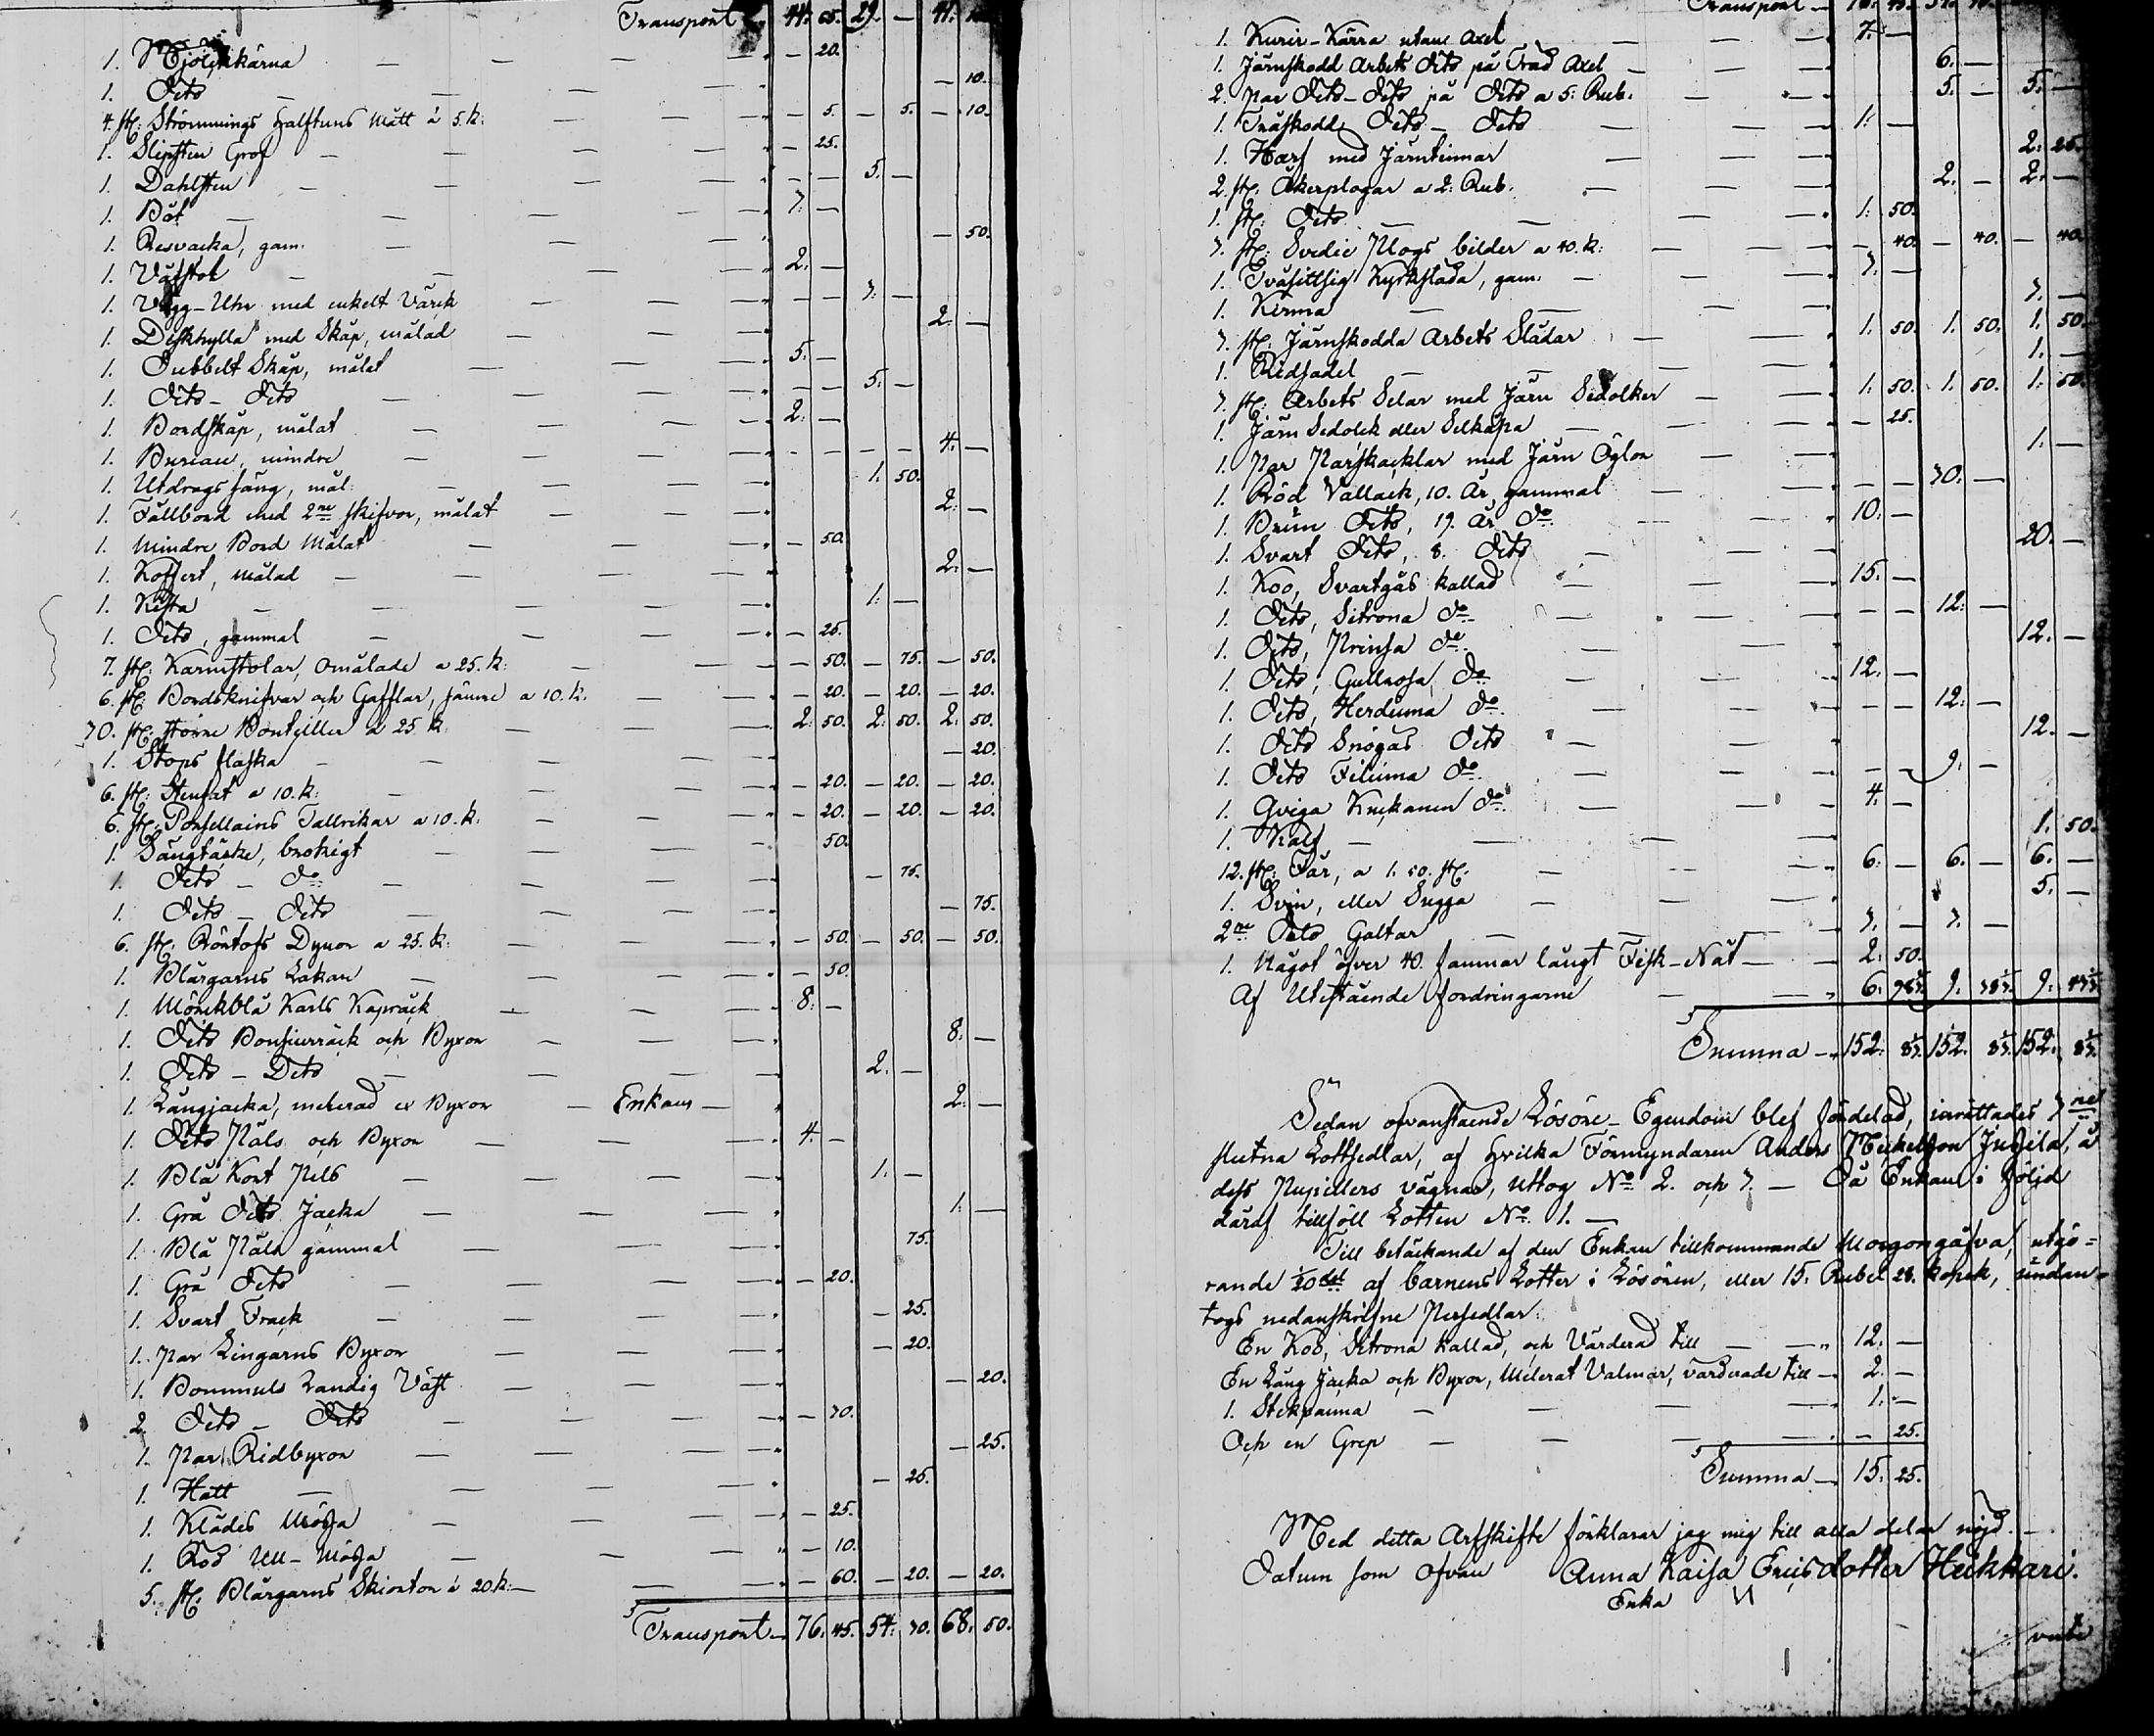 Transport 44. 65. 29. — 41.
1. Mjölkkärna — 20.
1. Dito — 10.
4. st: Strömmings halftuns Mått à 5. k: — 5. — 5. — 10.
1. Slipsten Grof — 25.
1. Dahlsten 5. —
1. Båt 7. —
1. Resväcka, gam: — 50.
1. Väfstol 2. —
1. Vägg-Uhr med enkelt Värck 7. —
1. Diskhylla med Skåp, målad 2. —
1. Dubbelt Skåp, målat 5. —
1. Dito – Dito 5. —
1. Bordskåp, målat 2. —
1. Bureau, mindre 4. —
1. Utdrags säng, mål: 1. 50.
1. Fällbord med 2ne skifvor, målat 2. —
1. Mindre Bord Målat — 50.
1. Koffert, målad 2. —
1. Kista 1. —
1. Dito, gammal — 25.
7. st: Karmstolar, Omålade a 25. k: — 50. — 75. — 50.
6. st: Bordsknifvar och Gafflar, sämre a 10. k. — 20. — 20. — 20.
30. st: större Bouteiller a 25 k 2. 50. 2. 50. 2. 50.
1. Stops flaska — 20.
6. st: Stenfat a 10. k: — 20. — 20. — 20.
6. st: Porsellains Tallrikar a 10. k. — 20. — 20. — 20.
1. Sängtäcke, brokigt 50.
1. Dito – Do — 75.
1. Dito – Dito — 75.
6. st: Dynor a 25. k: — 50. — 50. — 50.
1. Blårgarns Lakan — 50.
1. Mörckblå Karls Kapråck 8. —
1. Dito Bonjourråck och Byxor 8. —
1. Dito – Dito 2. —
1. Långjacka, melerad Byxor — Enkans — 2. —
1. Dito Päls och Byxor 4. —
1. Blå Kort Pels 1. —
1. Grå Dito Jacka 1. —
1. Blå Päls gammal 75.
1. Grå Dito — 20.
1. Svart Frack — 25.
1. Par Lingarns Byxor — 20.
1. Bommuls randig Väst — 20.
2. Dito – Dito — 30.
1. Par Ridbyxor — 25.
1. Hatt — 25.
1. Klädes Mössa — 25.
1. Röd Ull-Mössa — 10.
5. st: Blårgarns Skiortor à 20 k: — 60. — 20. — 20.
Transport 76. 45. 54. 30. 68. 50.
Transport
1. Kurir-Kärra utan Axel 7. —
1. Järnskodd Arbets Dito på Träd Axel 6. —
2. par Dito – Dito på Dito a 5. Rub. 5. — 5. —
1. Träskodd Dito – Dito 1. —
1. Harf med Järntinnar 2. 25.
2. st: Åkerplogar a 2. Rub. 2. — 2. —
1. st: Dito 1. 50.
3. st: Plogs bilder a 40. k: — 40. — 40. — 40.
1. Tvåsittsig Kyrksläda, gam: 3. —
1. 3. —
3. st: Järnskodda Arbets Slädar 1. 50. 1. 50. 1. 50.
1. Ridsadel 1. —
3. st: Arbets Selar med Järn Sedolker 1. 50. 1. 50. 1. 50.
1. Järn Sedolck eller Selkåpa — 25.
1. Par med Järn Öglor 1. —
1. Röd Vallack, 10. År gammal 30. —
1. Brun Dito, 17. År Do 10. —
1. Svart Dito, 8. Dito 20. —
1. Koo, Svartgås kallad 15. —
1. Dito, Sitrona Do 12. —
1. Dito, Prinsa Do 12. —
1. Dito, Gullrosa Do 12. —
1. Dito, Herduma Do 12. —
1. Dito Snögås Dito 12. —
1. Dito Filuma Do 9. —
1. Qviga Do 4. —
1. Kalf 1. 50.
12. st: Får, a 1. 50. st: 6. — 6. — 6. —
1. Svin, eller Sugga 5. —
2ne Dito Galtar 3. — 3. —
1. Något öfver 40. famnar långt Fisk-Nät 2. 50.
Af Utestående fordringarne 6. 9. 9.
Summa 152. 152. 152.
Sedan ofvanstående Lösöre-Egendom blef fördelad, inrättades 3ne
slutna Lottsedlar, af hvilka Förmyndaren Anders Mickelsson å
dess Pupillers vägnar, uttog No 2. och 3. — Då Enkan i följd
däraf tillföll Lotten No 1. —
Till betäckande af den Enkan tillkommande Morgongåfva, utgö=
rande 1/20del af barnens Lotter i Lösören, eller 15. Rubel 28. kopek, undan=
togs nedanskrifne Persedlar:
En Koo, Sitrona kallad, och Värderad till 12. —
En Lång Jacka och Byxor, Melerat Valmar, värderade till 2. —
1. Stekpanna 1. —
Och en Grep — 25.
Summa 15. 25.
Med detta Arfskifte förklarar jag mig till alla delar nöjd.
Datum som Ofvan Anna Kaisa Ericsdotter Heikkari.
Enka